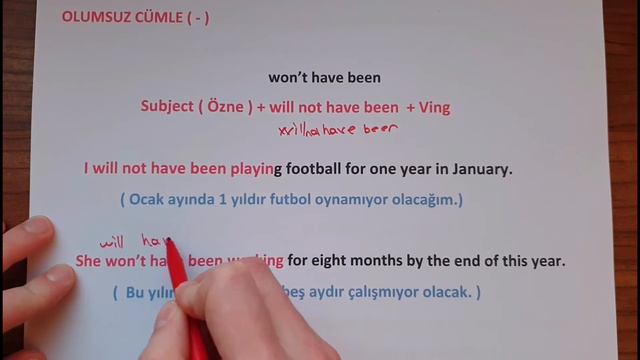 OLUMSUZ CÜMLE ( - )
won't have been
Subject ( Özne ) + will not have been + Ving
will not have been
I will not have been playing football for one year in January.
( Ocak ayında 1 yıldır futbol oynamıyor olacağım.)
will hav
She won't have been working for eight months by the end of this year.
( Bu yılın beş aydır çalışmıyor olacak. )